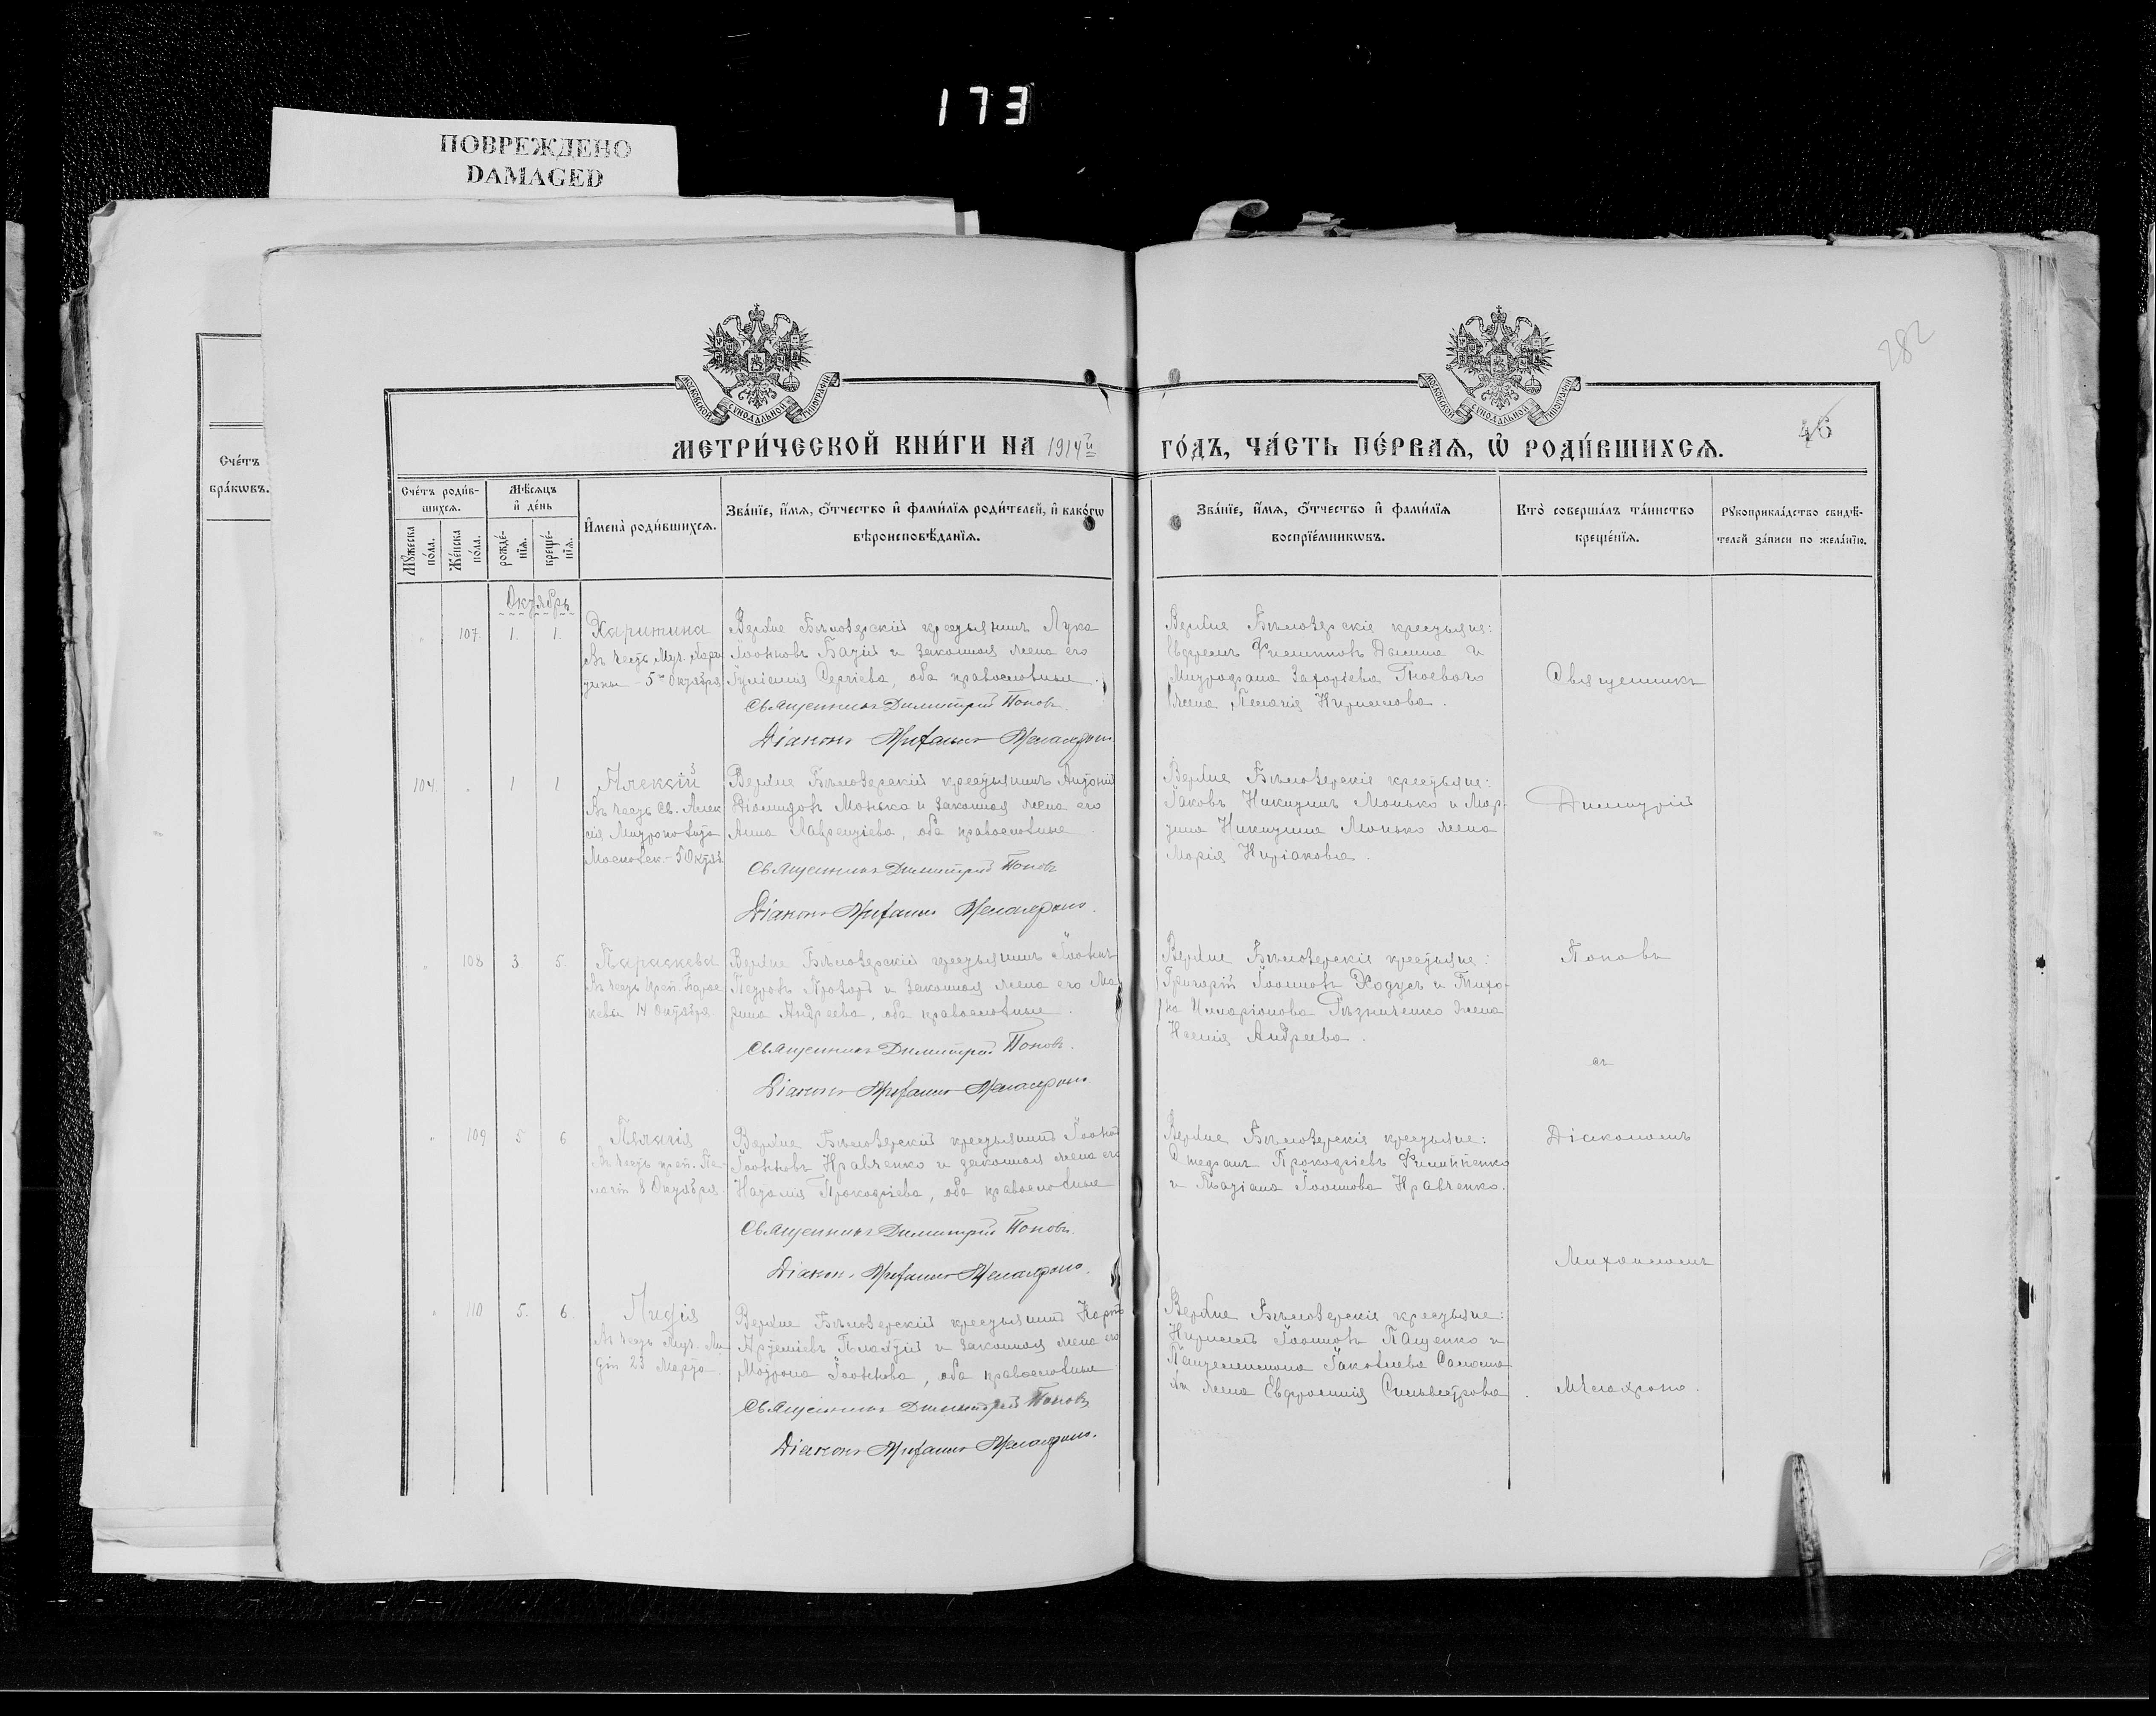 173
ПОВРЕЖДЕНО
DAMAGED
282
МОСКОВСКОЙ СУНОДАЛЬНОЙ ТИПОГРАФІИ
МОСКОВСКОЙ СУНОДАЛЬНОЙ ТИПОГРАФІИ
46
МЕТРИ́ЧЕСКОЙ КНИ́ГИ НА 1914й
ГО́ДЪ, ЧА́СТЬ ПЕ́РВАѦ, Ѡ҆ РОДИ́ВШИХСѦ.
Сче́тъ
бра́кѡвъ.
Сче́тъ роди́в-
шихсѧ.
Мѣ́сѧцъ
и҆ де́нь
Мꙋ́жеска
по́ла.
Же́нска
по́ла.
рожде́-
нїѧ.
креще́-
нїѧ.
И҆мена̀ роди́вшихсѧ.
Зва́нїе, и҆́мѧ, ѻ҆́тчество и҆ фами́лїѧ роди́телей, и҆ како́гѡ
вѣроисповѣ́данїѧ.
Зва́нїе, и҆́мѧ, ѻ҆́тчество и҆ фами́лїѧ
воспрїе́мникѡвъ.
Кто̀ соверша́лъ та́инство
креще́нїѧ.
Рꙋкоприкла́дство свидѣ́-
телей за́писи по жела́нїю.
Октябрь
107. 1. 1.
Харитина
Въ честь Муч. Хари
тины 5го Октября
Верхне Бѣлозерскій крестьянинъ Лука
Іоанновъ Багій и законная жена его
Сергіева, оба православные
Священникъ Димитрій Поповъ.
Діаконъ
Верхне Бѣлозерскіе крестьяне:
Филипповъ и
Митрофана Захаріева Гноевого
жена Пелагія Кириллова.
Священникъ
104. 1 1
Алексій
Въ честь Св. Алек
сія Митрополита
Московск. 5 Октяб
Верхне Бѣлозерскій крестьянинъ Антоній
Діомидовъ Монько и законная жена его
Анна Лаврентіева, оба православные
Священникъ Димитрій Поповъ
Діаконъ
Верхне Бѣлозерскіе крестьяне:
Іаковъ Никитинъ Монько и Мар-
тина Никитина Монько жена
Марія Киріакова.
Димитрій
108 3. 5.
Параскева
Въ честь Преп. Парас
кевы 14 Октября
Верхне Бѣлозерскій крестьянинъ Іоаннъ
Петровъ и законная жена его Ма
рина Андреева, оба православные.
Священникъ Димитрій Поповъ.
Діаконъ
Верхне Бѣлозерскіе крестьяне:
Григорій Іоанновъ Ходусъ и Тихо-
на Иларіонова Рѣзниченко жена
Ксенія Андреева.
Поповъ
съ
109 5 6
Пелагія
Въ честь преп. Пе-
лагіи 8 Октября
Верхне Бѣлозерскій крестьянинъ Іоаннъ
Іоанновъ Кравченко и законная жена его
Наталія Прокофіева, оба православные
Священникъ Димитрій Поповъ.
Діаконъ
Верхне Бѣлозерскіе крестьяне:
Стефанъ Прокофіевъ Филипенко
и Татіана Іоаннова Кравченко.
Діакономъ
Михаиломъ
110 5. 6.
Лидія
Въ честь Муч. Ли
діи 23 Марта.
Верхне Бѣлозерскій крестьянинъ Карпъ
Артеміевъ и законная жена его
Матрона Іоаннова, оба православные
Священникъ Димитрій Поповъ
Діаконъ
Верхне Бѣлозерскіе крестьяне:
Кириллъ Іоанновъ Пащенко и
Пантелеимона Іаковлева
жена Евфросинія Сильвестрова.